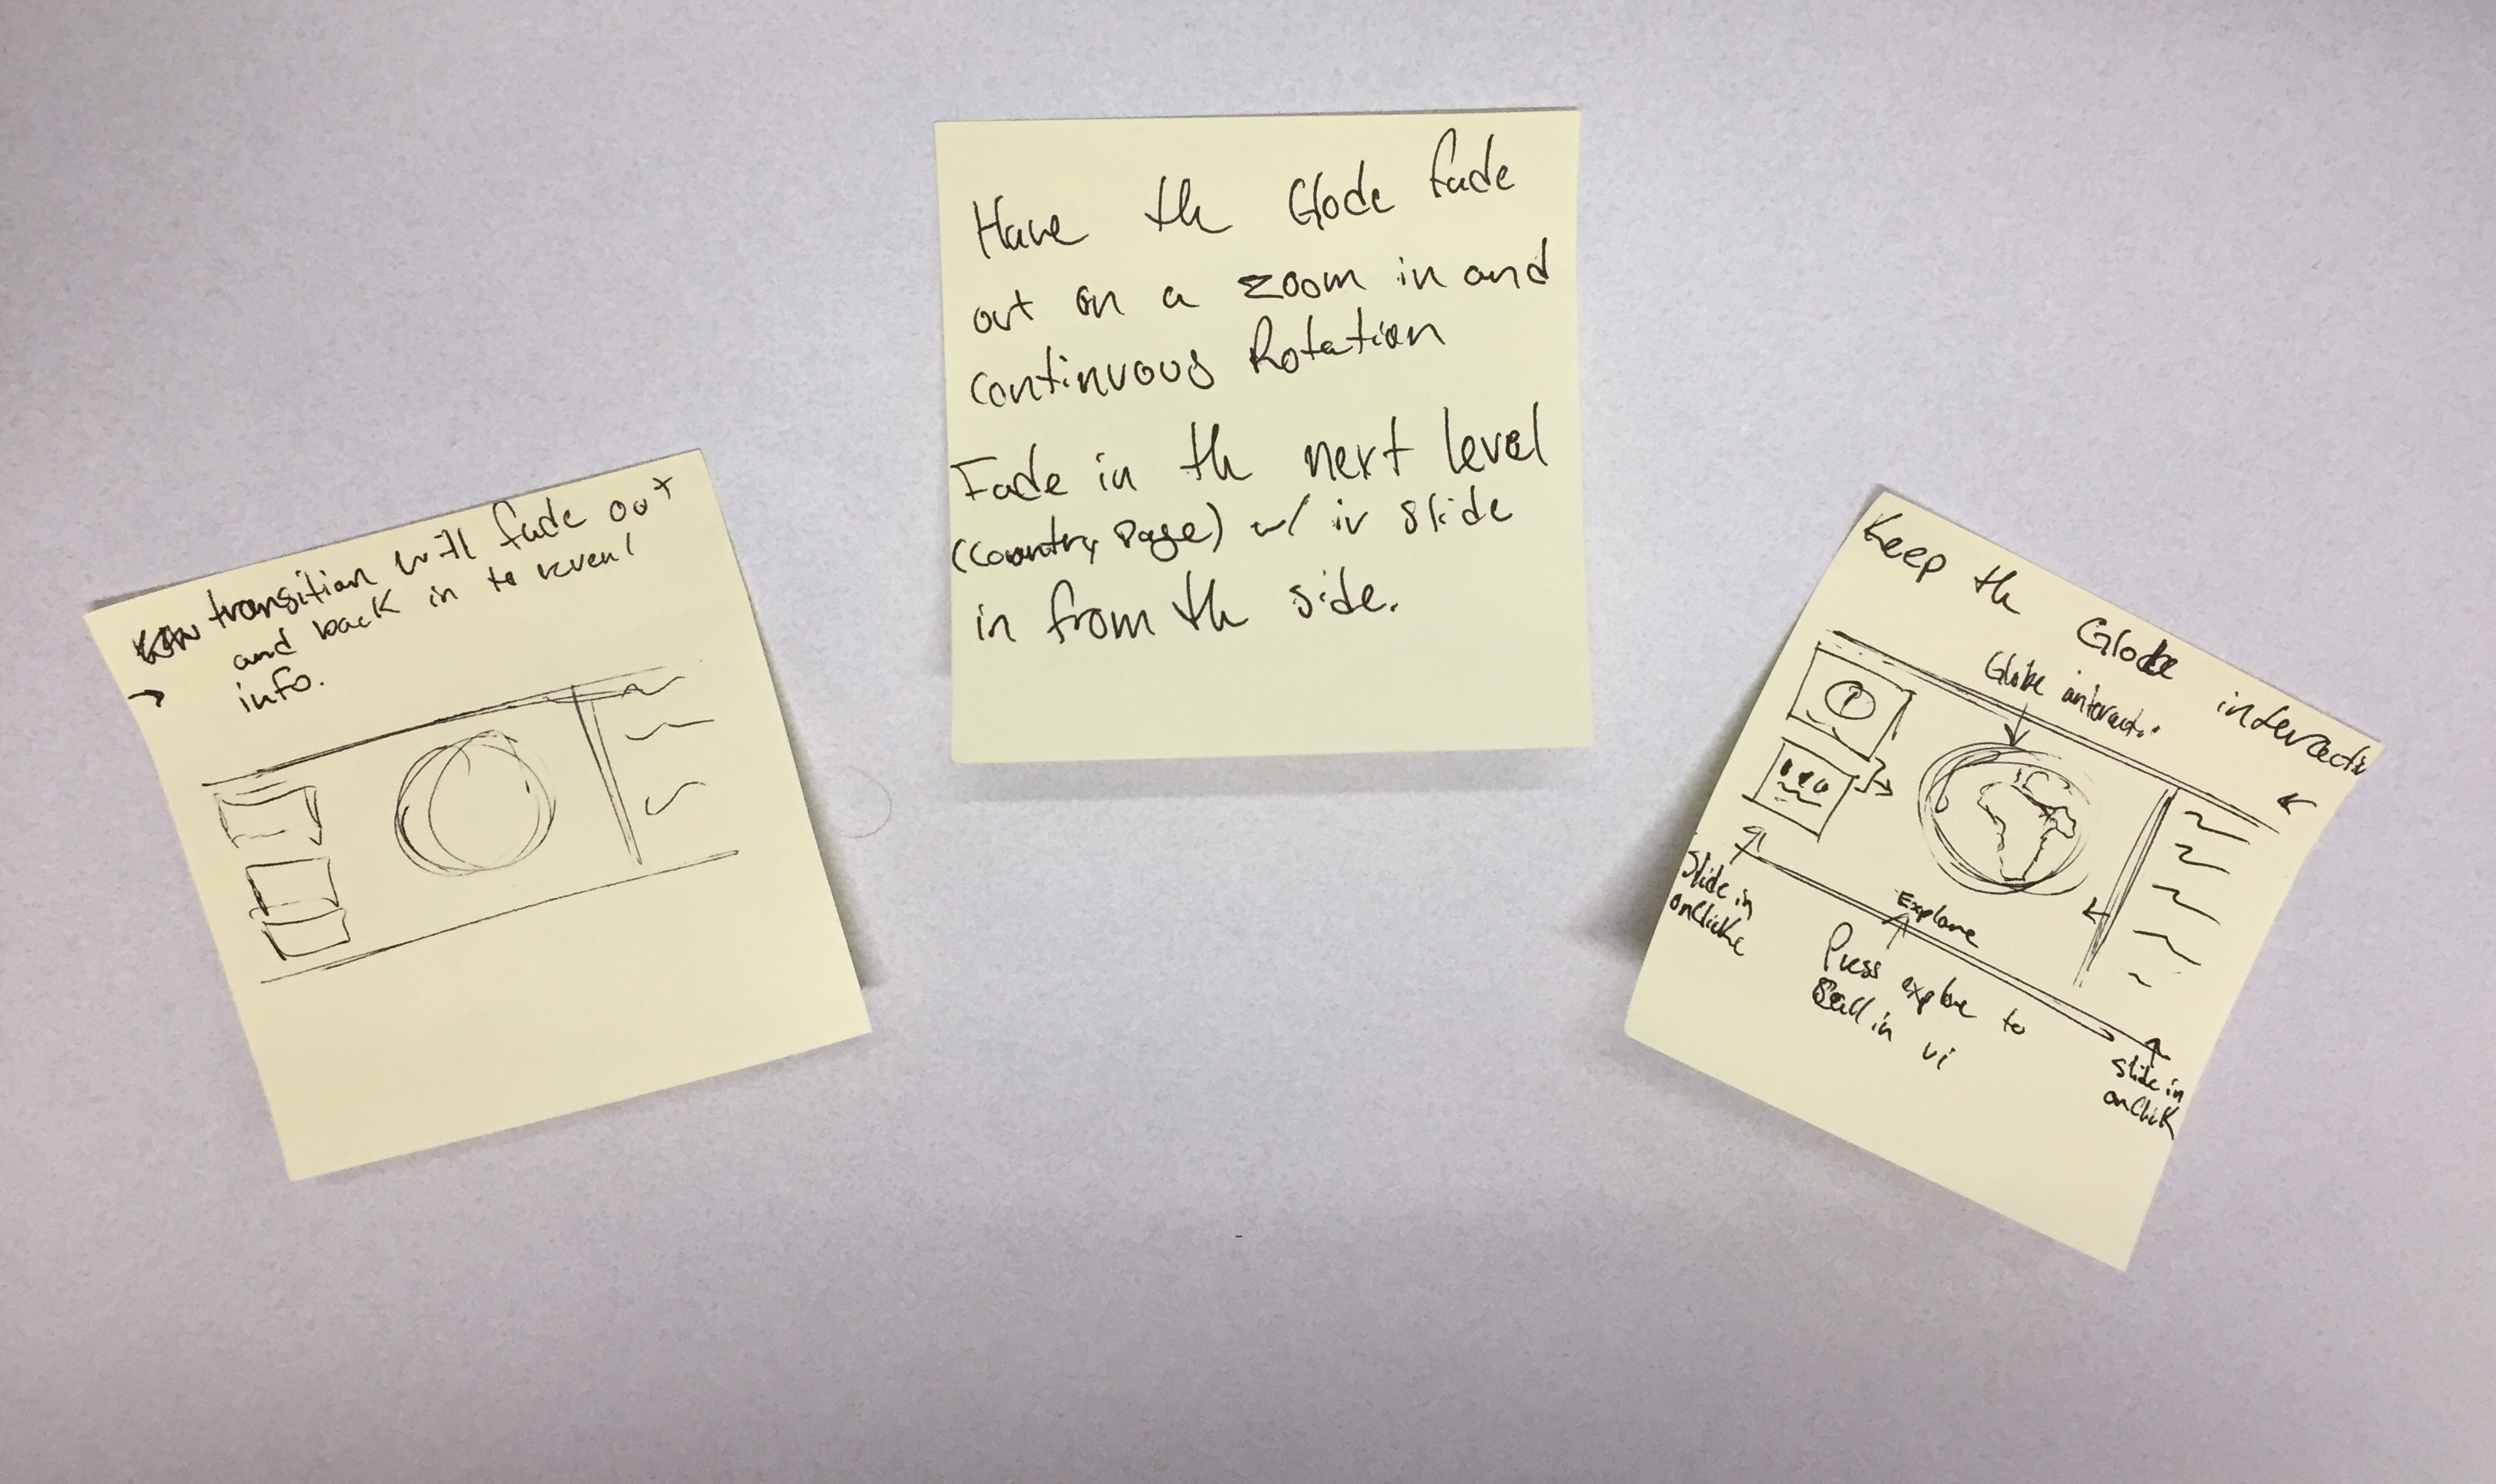 transition will fade out
and back in to reveal
info.
Have the Globe fade
out on a zoom in and
continuous Rotation
Fade in the next level
(Country Page) w/ slide
in from the side.
Keep the Globe interacti
Globe interact.
Slide in
onClick
Explore
Press explore to
in
slide in
onClick